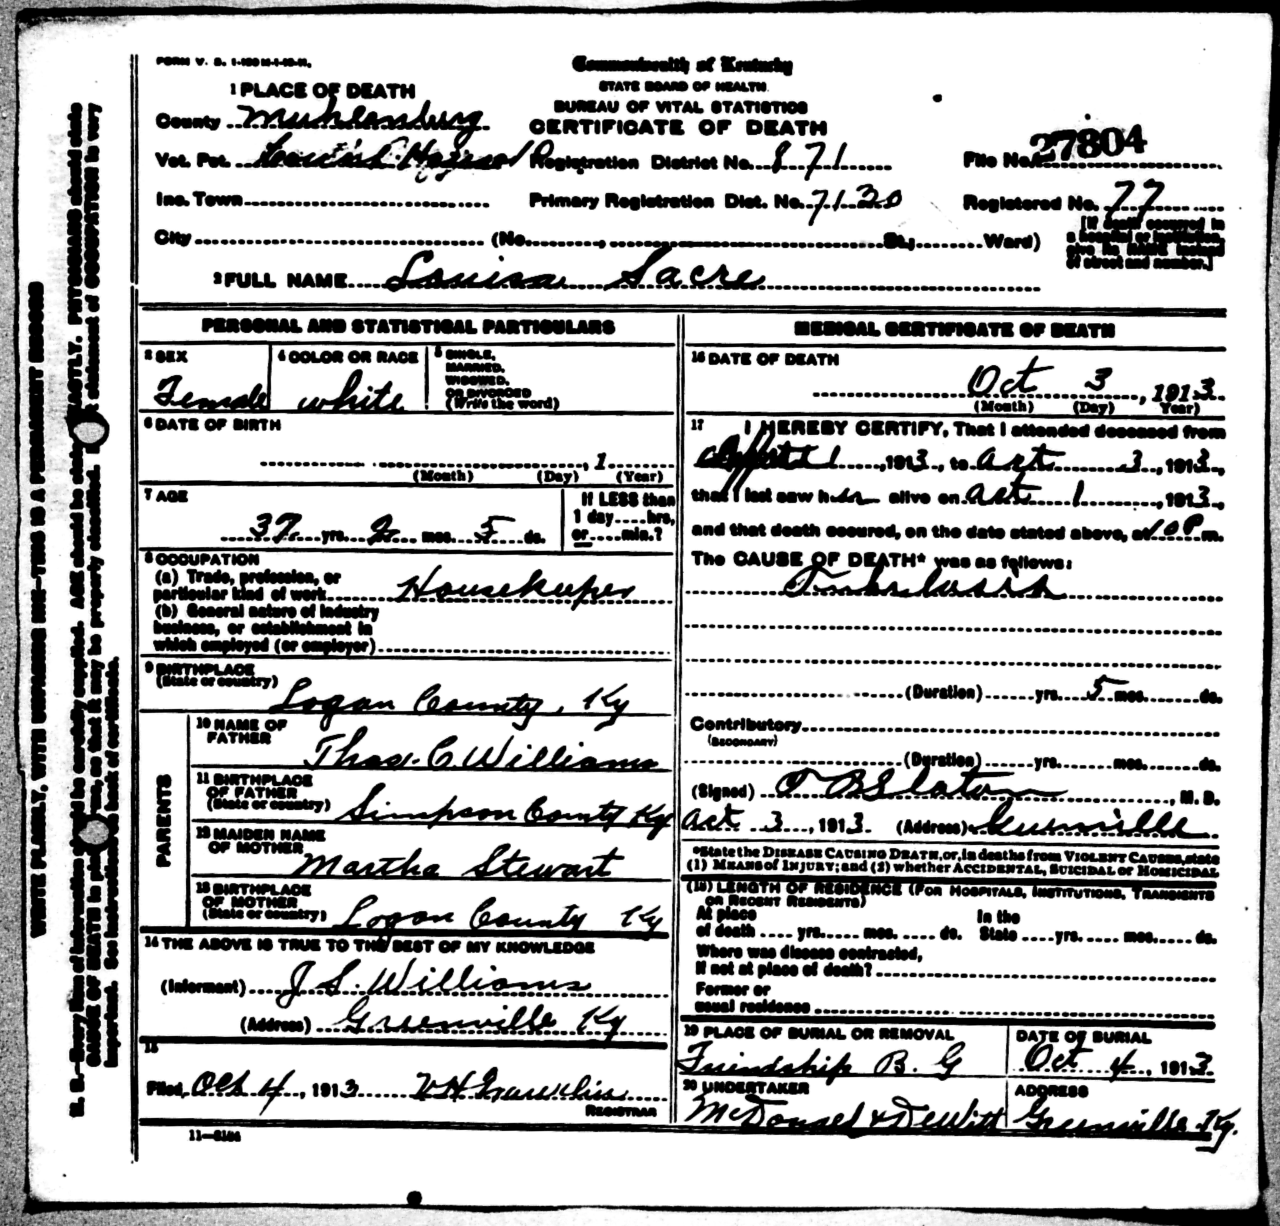 FORM V. S. 1-
Commonwealth of Kentucky
STATE BOARD OF HEALTH
BUREAU OF VITAL STATISTICS
CERTIFICATE OF DEATH
1 PLACE OF DEATH
County Muhlenburg
Vot. Pct. Registration District No. 871 File No. 27804
Inc. Town Primary Registration Dist. No. 7130 Registered No. 77
[If death occurred in
a hospital or institution,
give its NAME instead
of street and number.]
City (No. , St.; Ward)
2 FULL NAME Louisa Sacre
PERSONAL AND STATISTICAL PARTICULARS
3 SEX
Female
4 COLOR OR RACE
white
5 SINGLE,
MARRIED,
WIDOWED,
OR DIVORCED
(Write the word)
6 DATE OF BIRTH
, 1
(Month) (Day) (Year)
7 AGE
37 yrs. 2 mos. 5 ds.
If LESS than
1 day hrs,
or min.?
8 OCCUPATION
(a) Trade, profession, or
particular kind of work Housekeeper
(b) General nature of industry
business, or establishment in
which employed (or employer)
9 BIRTHPLACE
(State or country)
Logan County, Ky
PARENTS
10 NAME OF
FATHER
Thos. C. Williams
11 BIRTHPLACE
OF FATHER
(State or country) Simpson County Ky
12 MAIDEN NAME
OF MOTHER
Martha Stewart
13 BIRTHPLACE
OF MOTHER
(State or country) Logan County Ky
14 THE ABOVE IS TRUE TO THE BEST OF MY KNOWLEDGE
(Informant) J S. Williams
(Address) Greenville Ky
15
Filed Oct 4, 1913
REGISTRAR
11—
MEDICAL CERTIFICATE OF DEATH
16 DATE OF DEATH
Oct 3, 1913
(Month) (Day) Year)
17 I HEREBY CERTIFY, That I attended deceased from
1, 1913, to Oct 3, 1913,
that I last saw her alive on Oct 1, 1913,
and that death occured, on the date stated above, at 10 P m.
The CAUSE OF DEATH* was as follows:
(Duration) yrs. 5 mos. ds.
Contributory
(SECONDARY)
(Duration) yrs. mos. ds.
(Signed) T B Slaton, M. D.
Oct 3, 1913. (Address) Greenville
*State the DISEASE CAUSING DEATH, or, in deaths from VIOLENT CAUSES, state
(1) MEANS of INJURY; and (2) whether ACCIDENTAL, SUICIDAL or HOMICIDAL
(18) LENGTH OF RESIDENCE (FOR HOSPITALS, INSTITUTIONS, TRANSIENTS
OR RECENT RESIDENTS)
At place In the
of death yrs. mos. ds. State yrs. mos. ds.
Where was disease contracted,
if not at place of death?
Former or
usual residence
19 PLACE OF BURIAL OR REMOVAL
Friendship B. G
DATE OF BURIAL
Oct 4, 1913
20 UNDERTAKER
McDonald & DeWitt
ADDRESS
Greenville Ky.
WRITE PLAINLY, WITH UNFADING INK—THIS IS A PERMANENT RECORD
N. B.—Every item of information should be carefully supplied. AGE should be stated EXACTLY. PHYSICIANS should state
CAUSE OF DEATH in plain terms, so that it may be properly classified. Exact statement of OCCUPATION is very
important. See instructions on back of certificate.